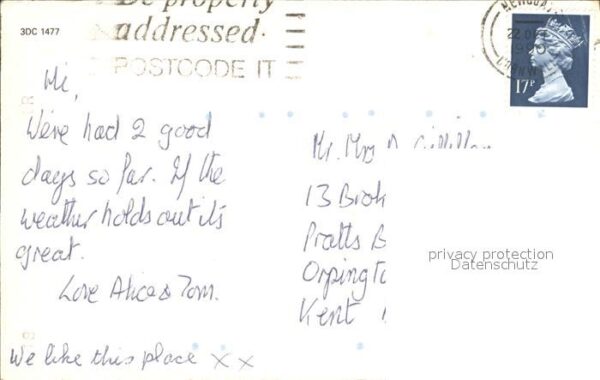 3DC 1477
Be properly
addressed.
POSTCODE IT
17P
Hi,
We've had 2 good
days so far. If the
weather holds out it's
great.
Love Alice & Tom.
We like this place x x
Mr. Mrs
13 Brok
Pratts B
Orpingto
Kent
privacy protection
Datenschutz